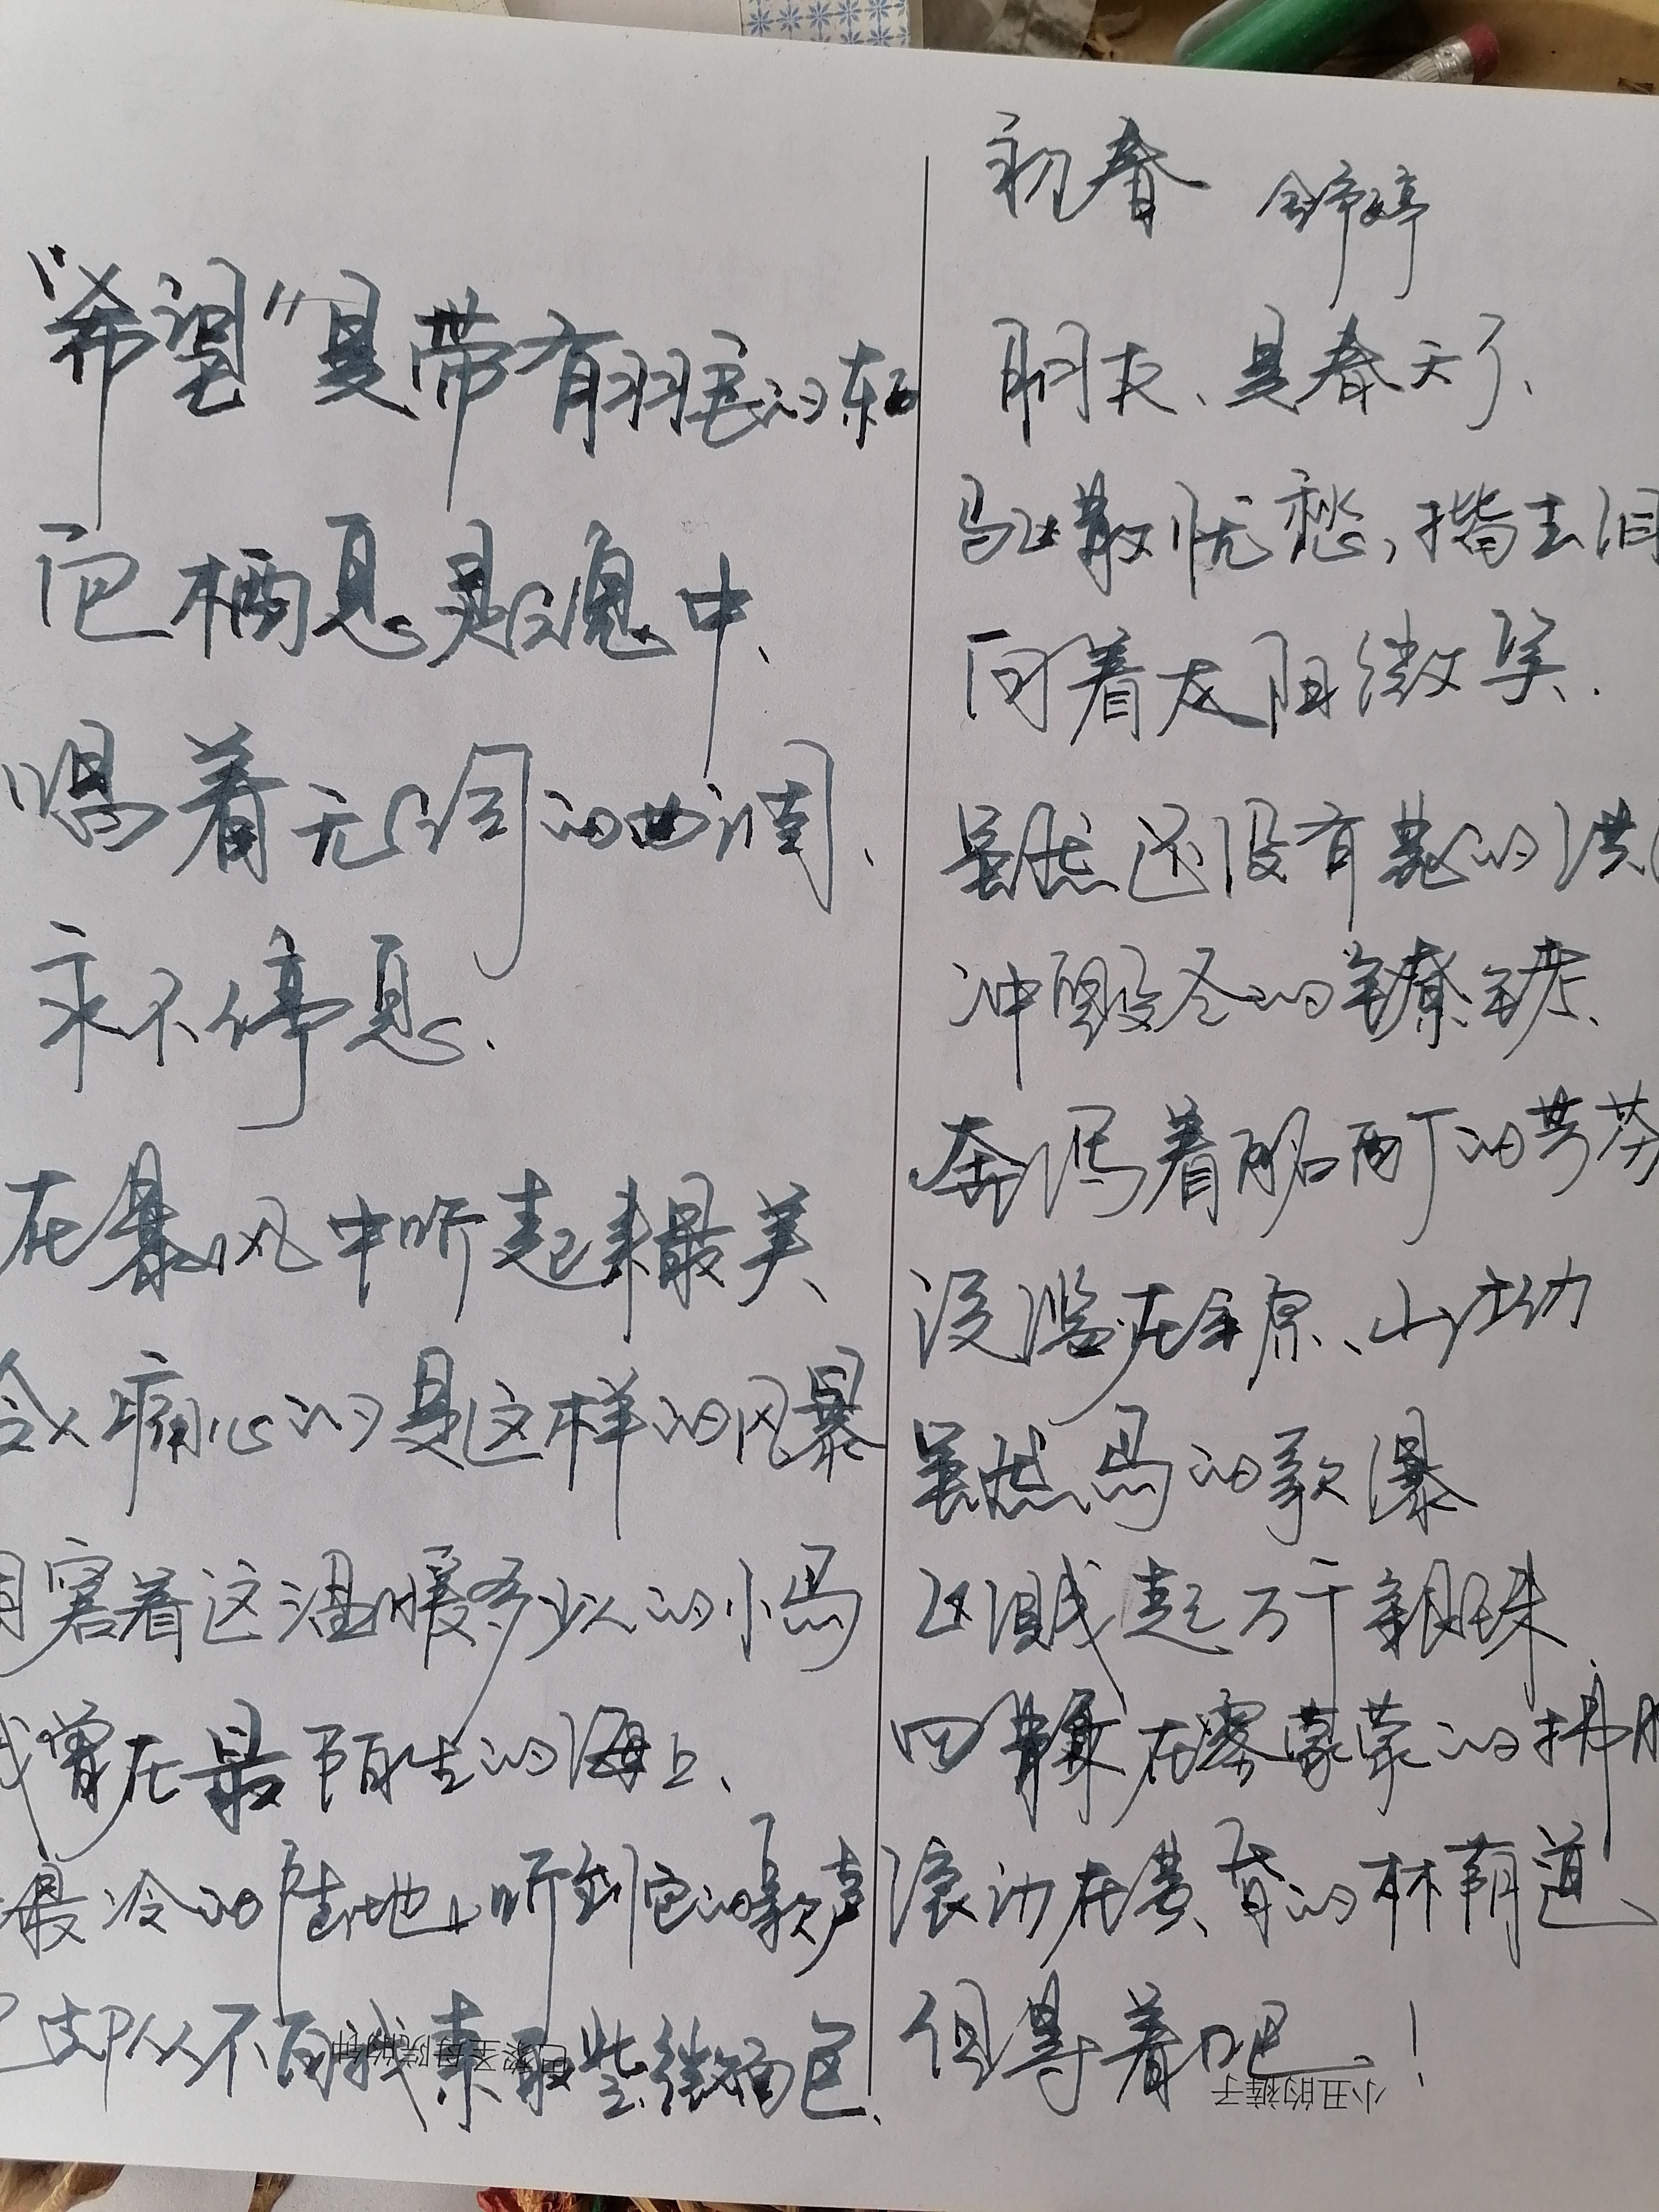 “希望”是带有羽毛的东西
它栖息灵魂中、
唱着无词的曲调、
永不停息.
在暴风中听起来最美、
令人痛心的是这样的风暴
困窘着这温暖多少人的小鸟
我曾在最陌生的海上、
最冷的陆地上听到它的歌声
却从不向我索取些微面包、
巴黎圣母院的钟
初春 舒婷
朋友、是春天了、
驱散忧愁,揩去泪
向着太阳微笑.
虽然还没有花的洪
冲毁冬的镣铐、
奔泻着酩酊的芬芳
泛滥在平原、山坳
虽然鸟的歌瀑
飞溅起万千银珠
四散在雾蒙蒙的拂
滚动在黄昏的林荫道、
但等着吧、!
小丑的裤子